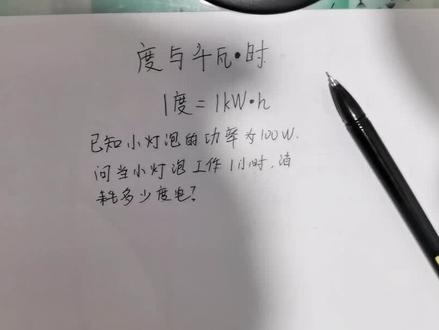 度与千瓦•时
1度=1kW•h
已知小灯泡的功率为100W.
问当小灯泡工作1小时,消
耗多少度电?